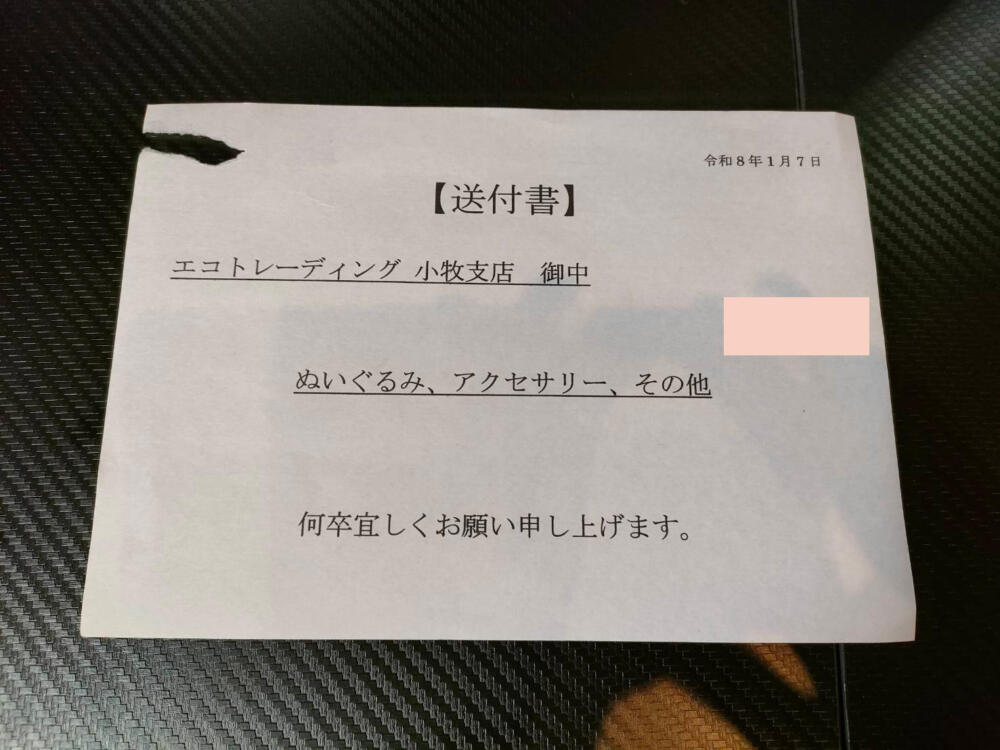 令和８年１月７日
【送付書】
エコトレーディング 小牧支店　御中
ぬいぐるみ、アクセサリー、その他
何卒宜しくお願い申し上げます。